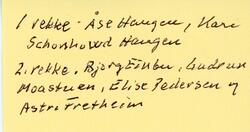 1 rekke - Åse Haugen, Kari
Haugen
2. rekke, Bjørg Einbu, Gudrun
Moastuen, Elise Pedersen og
Astri Fretheim